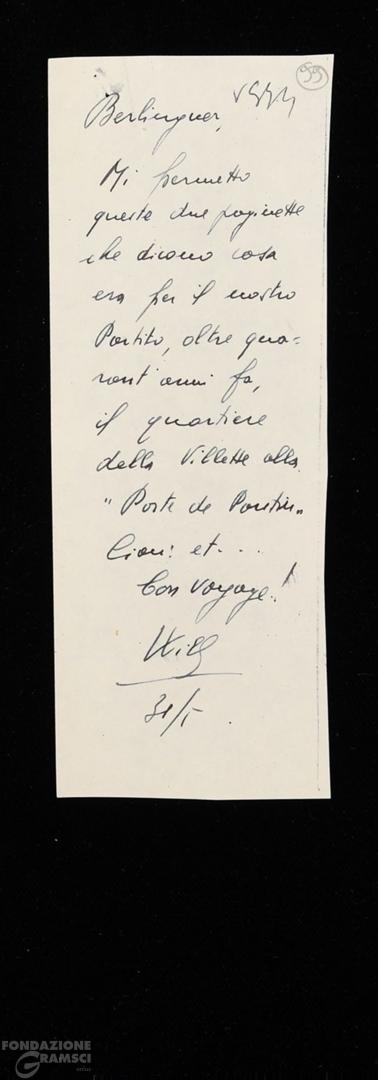 99
Berlinguer,
Mi permetto
queste due paginette
che dicono cosa
era per il nostro
Partito, oltre qua=
rant'anni fa,
il quartiere
della Villette alla
"Porte de Pantin"
Ciao! et...
bon voyage!
31/5
FONDAZIONE
GRAMSCI
onlus